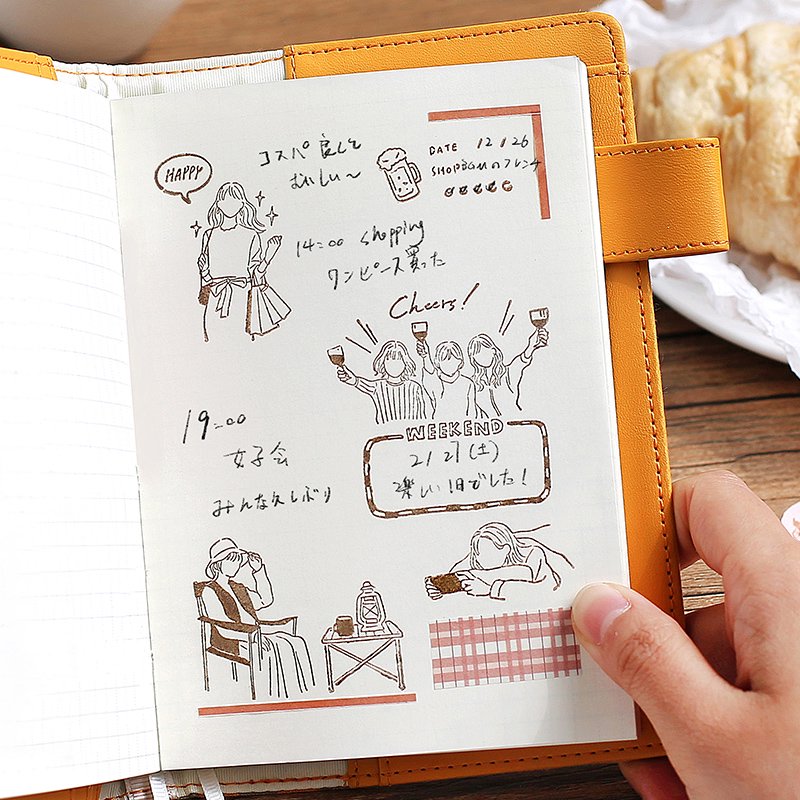 HAPPY
コスパ良くて
おいしい〜
DATE 12/26
14:00 shopping
ワンピース買った
Cheers!
19:00
女子会
みんな久しぶり
WEEKEND
2/27(土)
楽しい1日でした!